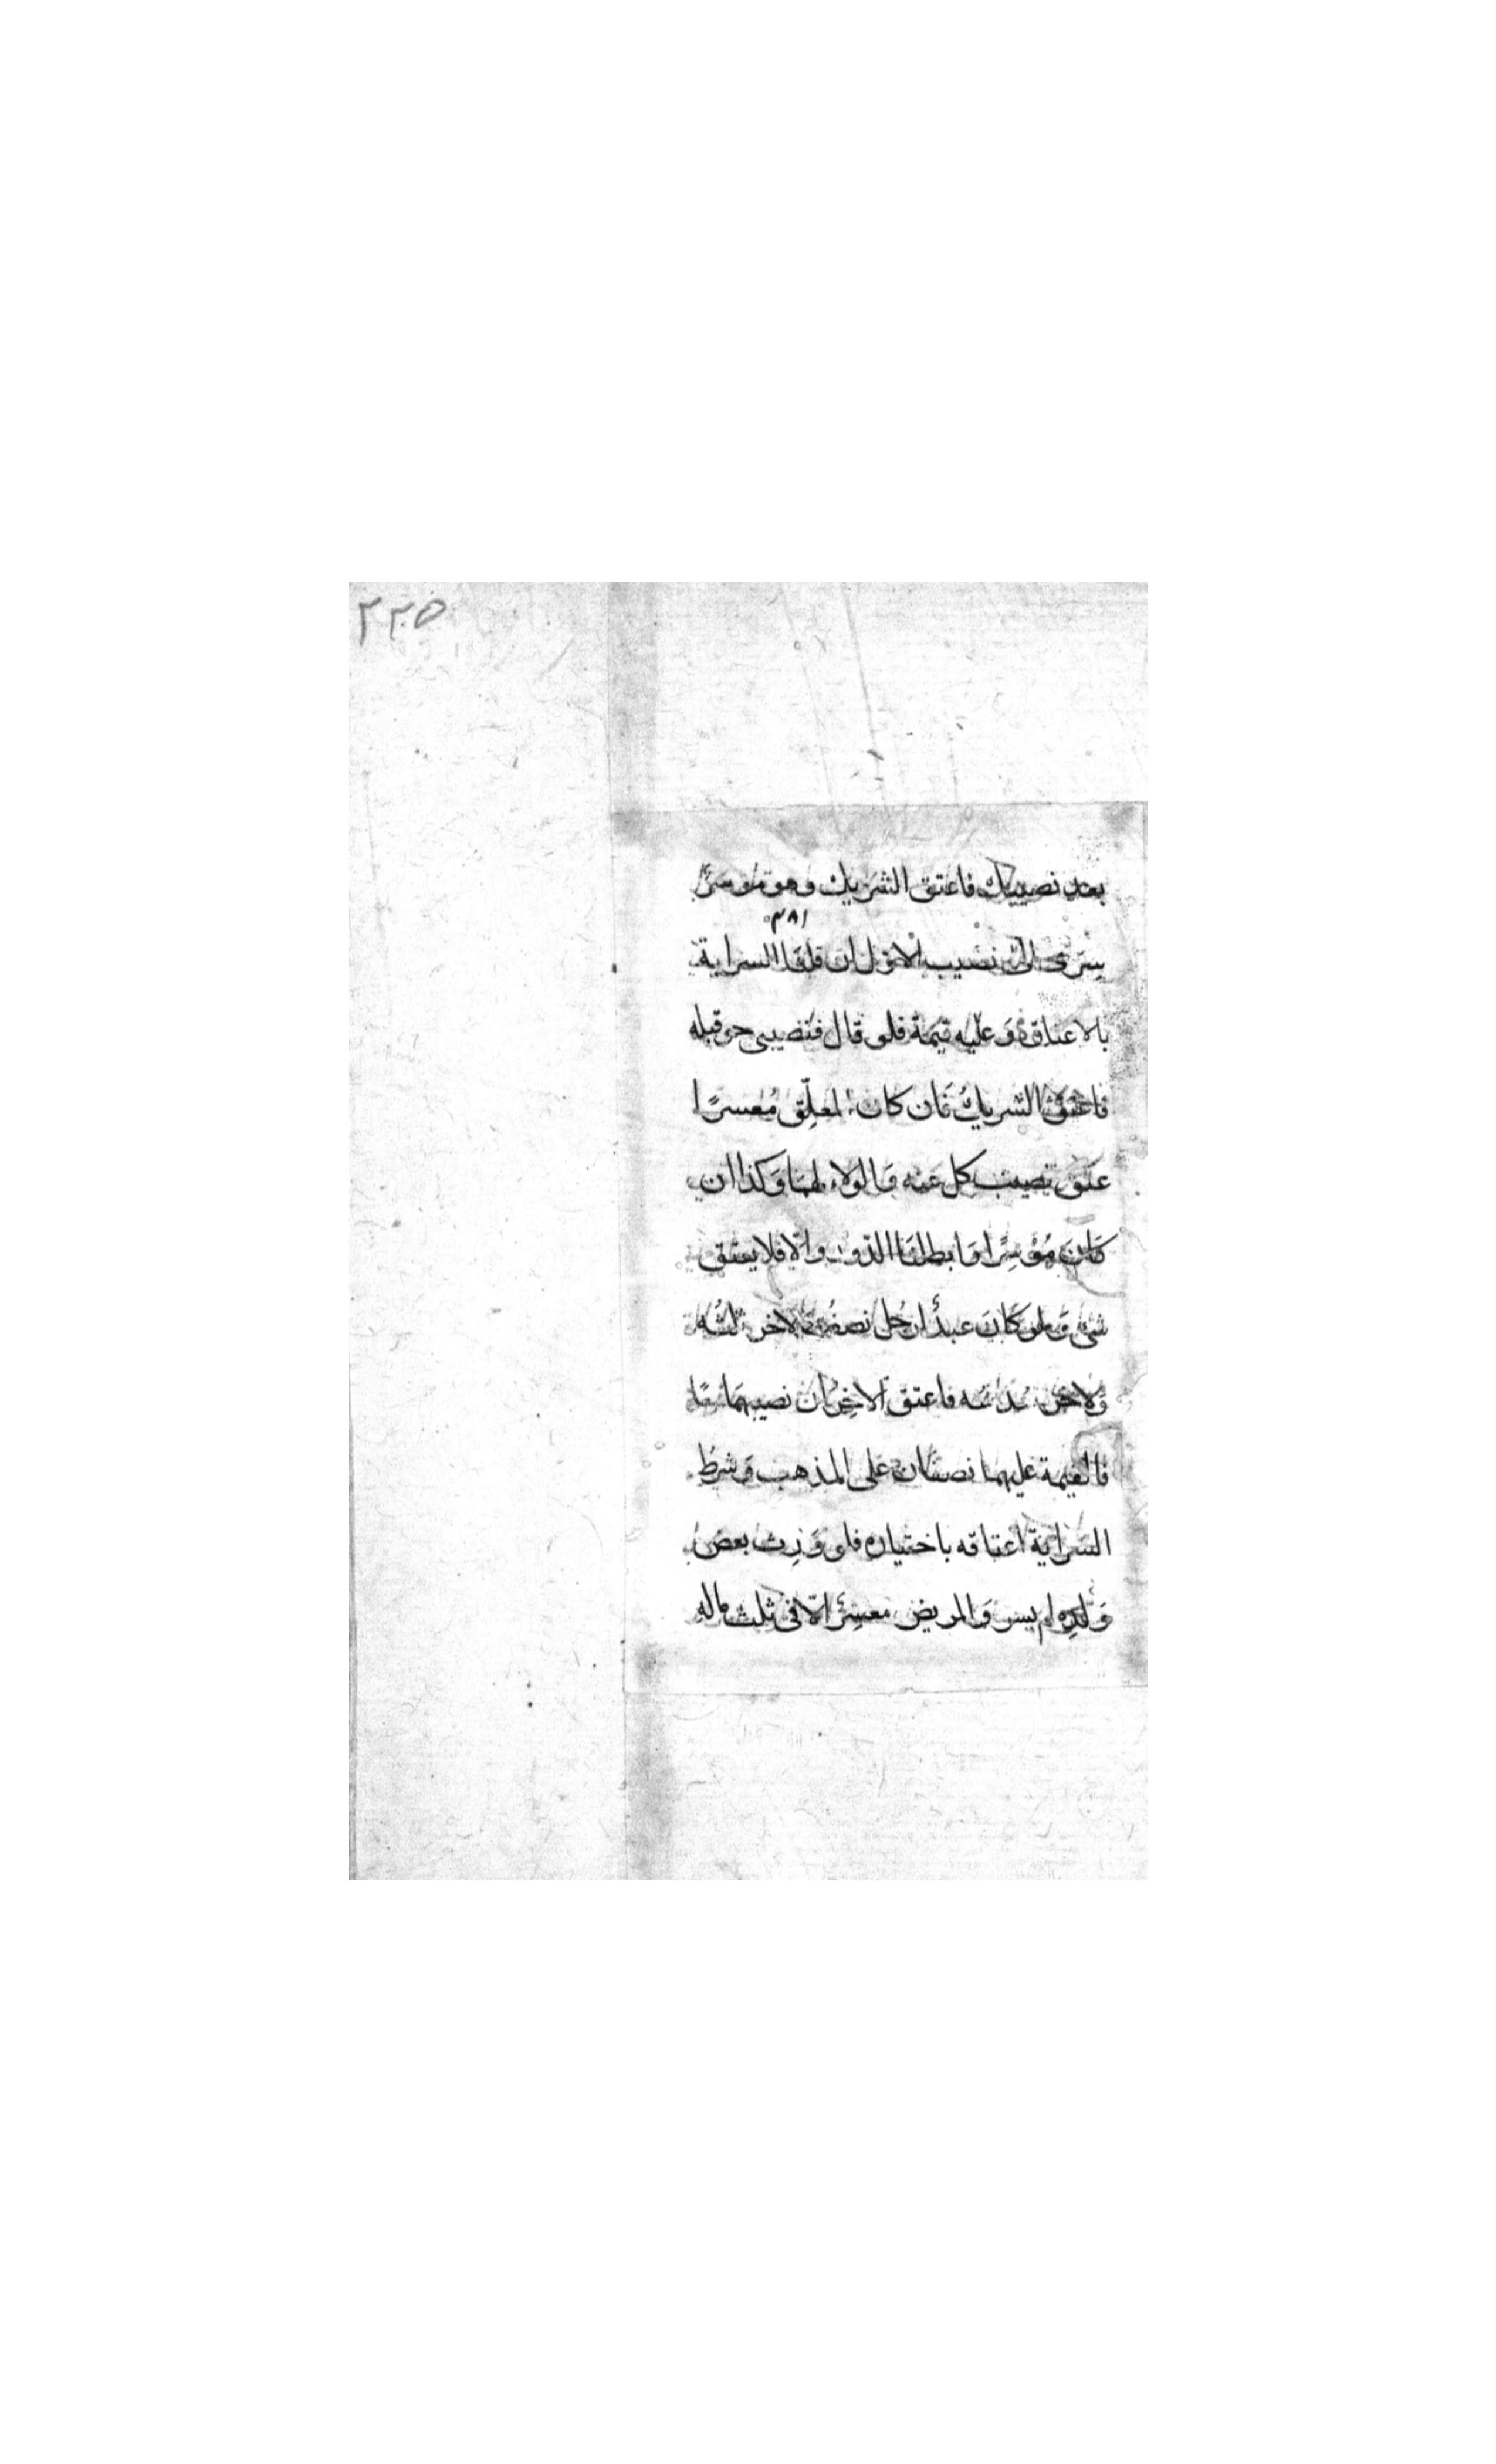 ٢٢٥
بعد نصيبك فاعتق الشريك وهو موسرً
٣٨١
سرى الى نصيب الاول ان قلنا السراية
بالاعتاق وَعليه قيمة فلو قال فنصيبى حر قبله
فاعتق الشريك فَان كان المعلّق مُعسرًا
عتق نصيب كل عنه وَالولاء لهمَا وَكذا ان
كَانَ مُوْسِرًا وَابطلنَا الدّور والّا فلا يعتق
شىء وَلو كَانَ عبدٌ لرجُل نصفُه ولاخر ثلثُه
وَلاخر سدسُه فاعتق الاخِرَان نصيبهمَا معًا
فالقيمة عليهما نصفان على المذهب وَشرطُ
السّراية اعتاقه باختياره فلو وَرِث بعض
وَلَدِه لم يسر وَالمريض معسِرٌ الّا فى ثلث ماله